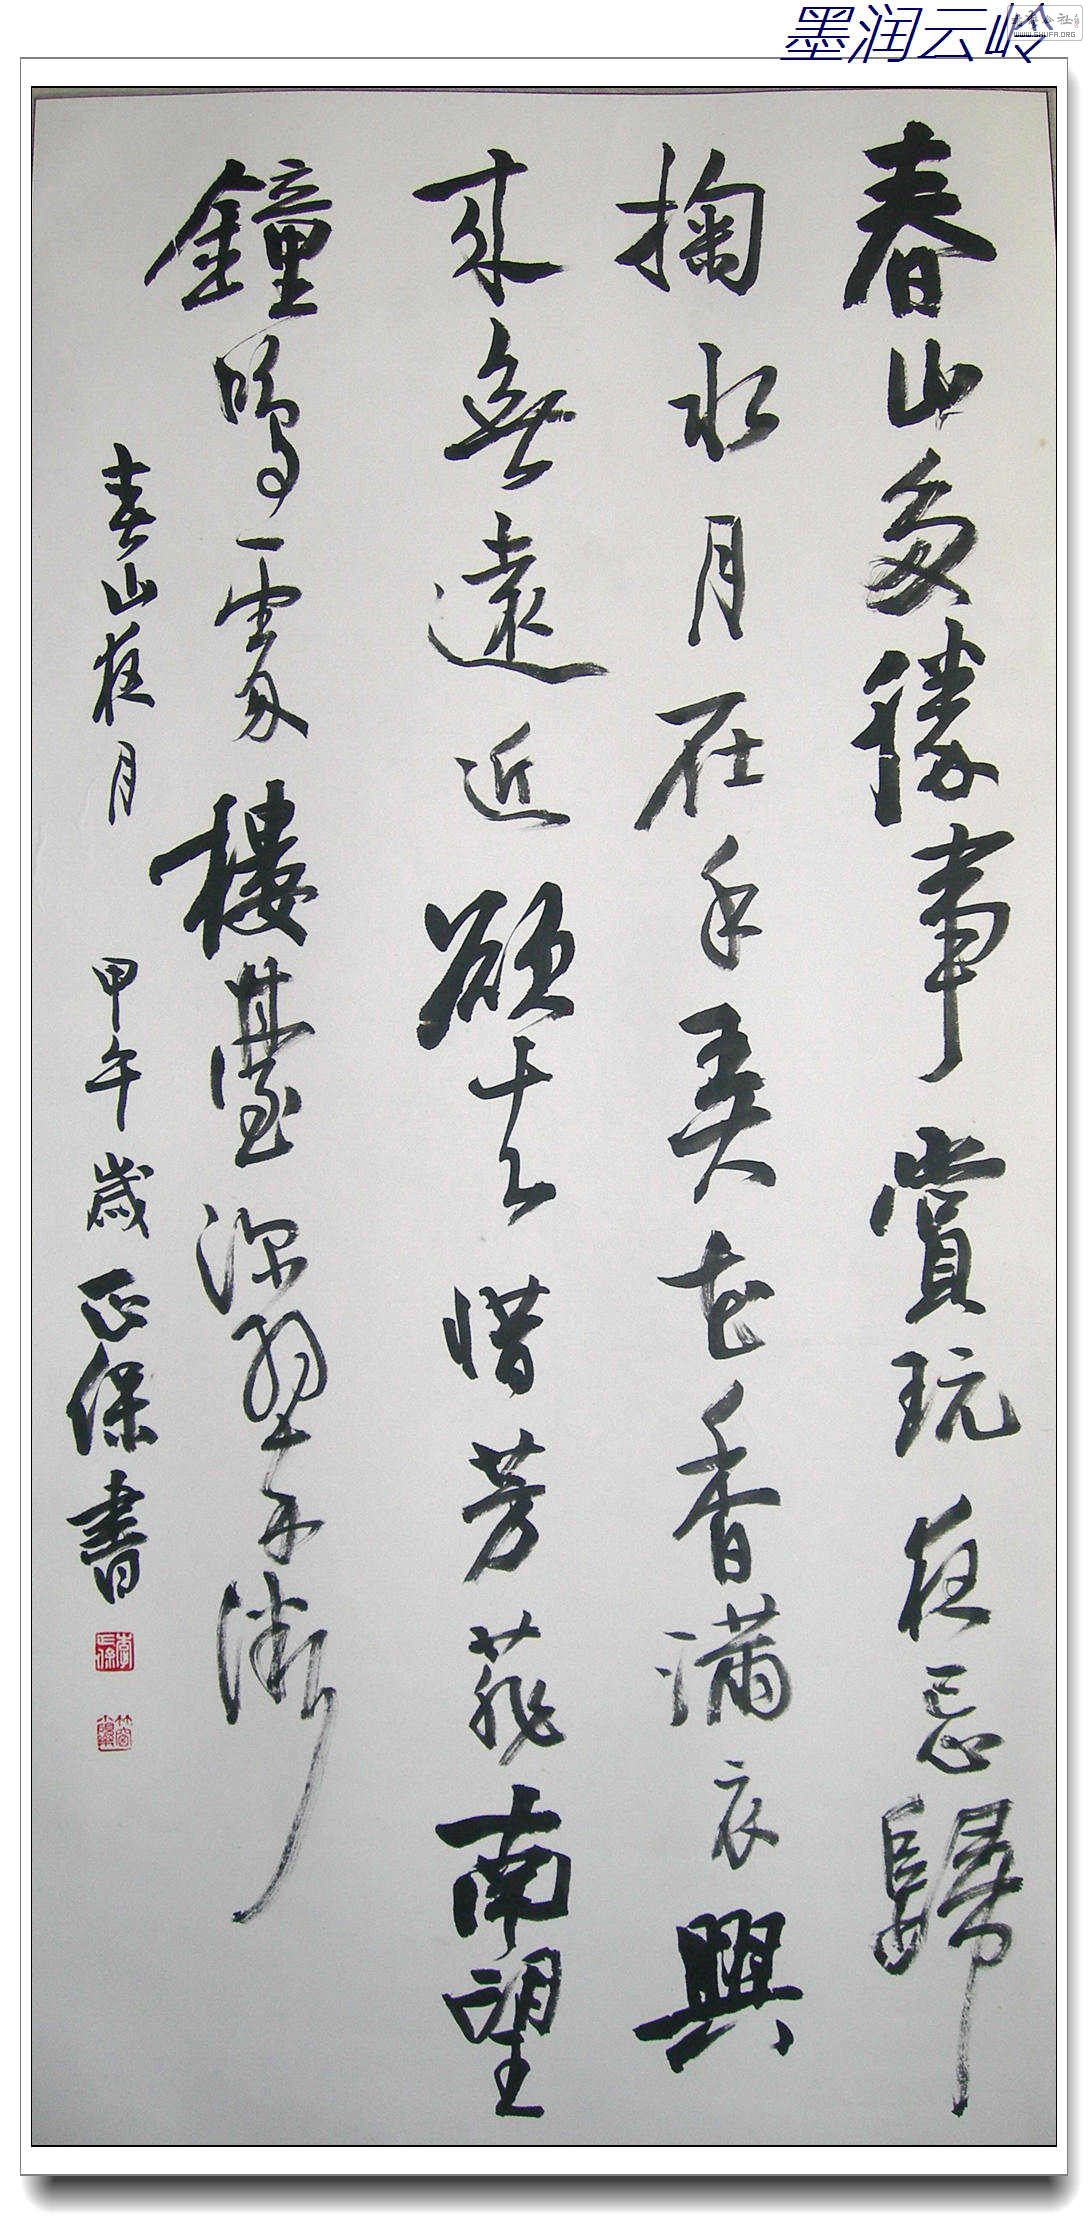 墨润云岭
WWW.SHUFA.ORG
春山多勝事賞玩夜忘歸
掬水月在手弄花香滿衣興
來無遠近欲去惜芳菲南望
鐘鳴處樓臺深翠微
春山夜月 甲午歲 正保書
李正保